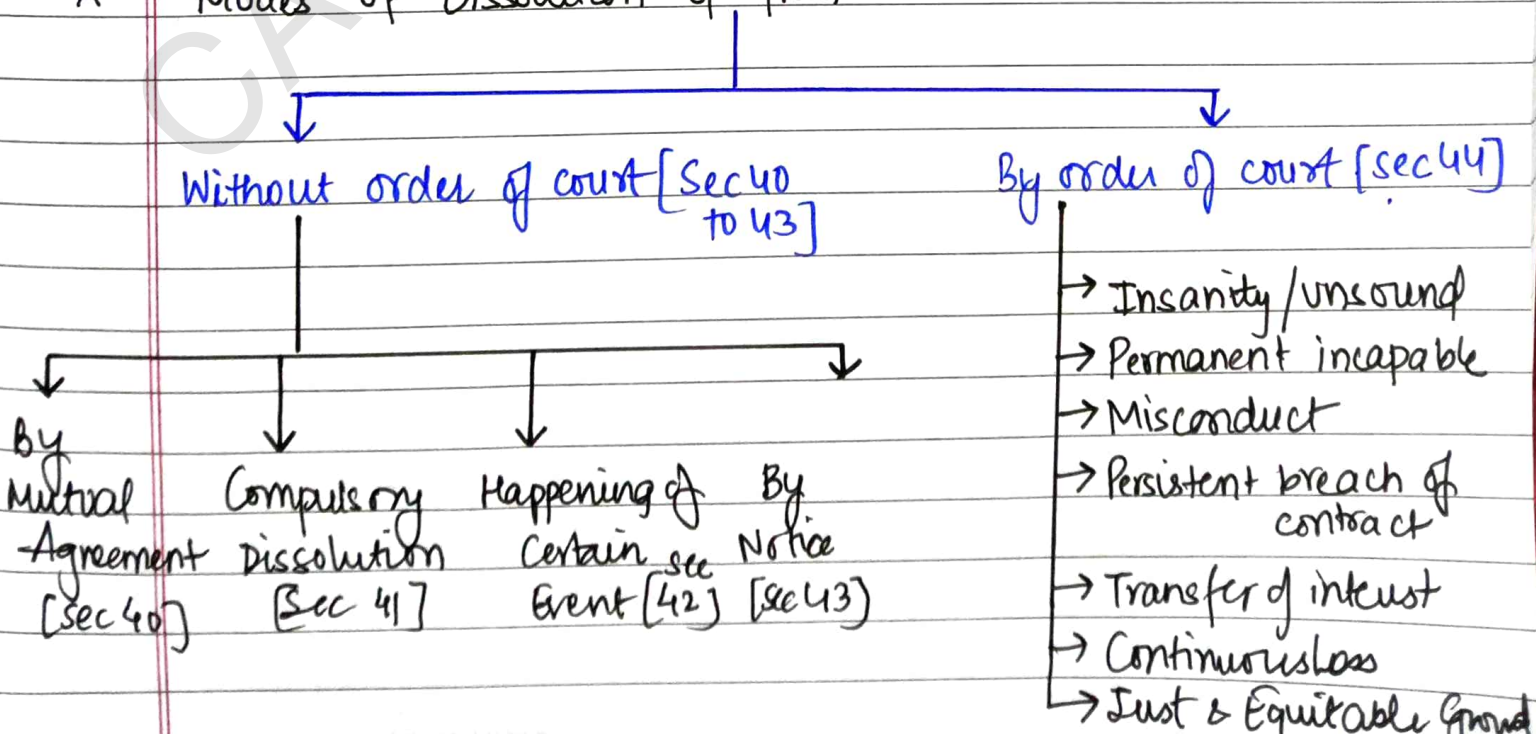 Modes of Dissolution of
CA
Without order of court [Sec 40
to 43]
By order of court [sec 44]
By
Mutual
Agreement
[sec 40]
Compulsory
Dissolution
[Sec 41]
Happening of
Certain sec
Event [42]
By
Notice
[sec 43]
→ Insanity/unsound
→ Permanent incapable
→ Misconduct
→ Persistent breach of
contract
→ Transfer of interest
→ Continuous Loss
→ Just & Equitable Ground